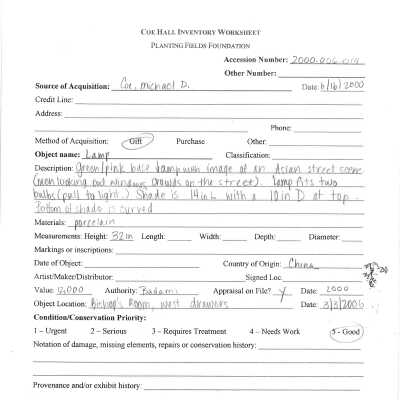 COE HALL INVENTORY WORKSHEET
PLANTING FIELDS FOUNDATION
Accession Number: 2000.006.014
Other Number:
Source of Acquisition: Coe, Michael D. Date: 6/16/2000
Credit Line:
Address:
Phone:
Method of Acquisition: Gift Purchase Other:
Object name: Lamp Classification:
Description: Green/pink base lamp with image of an Asian street scene
(men looking out windows, crowds on the street). Lamp fits two
bulbs (pull to light.) Shade is 14in L with a 10in D at top.
Bottom of shade is curved
Materials: porcelain
Measurements: Height: 32in Length: Width: Depth: Diameter:
Markings or inscriptions:
Date of Object: Country of Origin: China
Artist/Maker/Distributor: Signed Loc:
Value: Authority: Badami Appraisal on File? Y Date: 2000
Object Location: Bishop's Room, west drawers Date: 3/3/2006
Condition/Conservation Priority:
1 – Urgent 2 – Serious 3 – Requires Treatment 4 – Needs Work 5 - Good
Notation of damage, missing elements, repairs or conservation history:
Provenance and/or exhibit history: